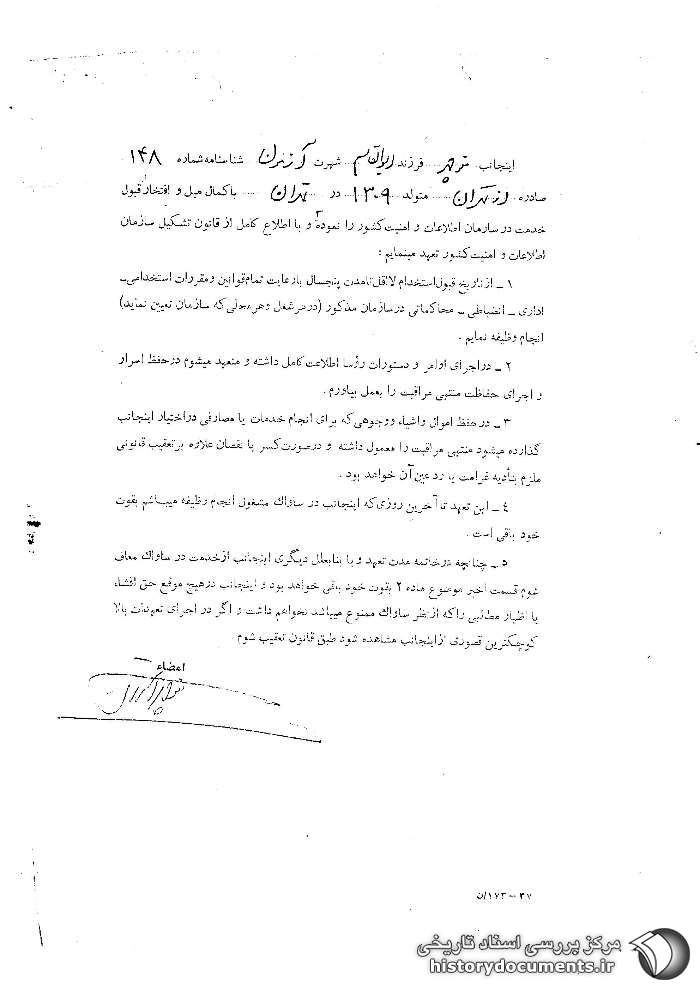 اینجانب منوچهر فرزند ابوالقاسم شهرت آزمون شناسنامه شماره ۱۴۸
صادره از تهران متولد ۱۳۰۹ در تهران با کمال میل و افتخار قبول
خدمت در سازمان اطلاعات و امنیت کشور را نموده و با اطلاع کامل از قانون تشکیل سازمان
اطلاعات و امنیت کشور تعهد مینمایم :
۱ ـ از تاریخ قبول استخدام لااقل تا مدت پنجسال با رعایت تمام قوانین و مقررات استخدامی ـ
اداری ـ انضباطی ـ محاکماتی در سازمان مذکور (در هر شغل و هر محلی که سازمان تعیین نماید)
انجام وظیفه نمایم .
۲ ـ در اجرای اوامر و دستورات رؤسا اطاعت کامل داشته و متعهد میشوم در حفظ اسرار
و اجرای حفاظت منتهی مراقبت را بعمل بیاورم .
۳ ـ در حفظ اموال و اشیاء و وجوهی که برای انجام خدمات یا مصارفی در اختیار اینجانب
گذارده میشود منتهی مراقبت را معمول داشته و در صورت کسر یا نقصان علاوه بر تعقیب قانونی
ملزم بتأدیه غرامت یا رد عین آن خواهد بود .
٤ ـ این تعهد تا آخرین روزی که اینجانب در ساواک مشغول انجام وظیفه میباشم بقوت
خود باقی است .
۵ ـ چنانچه در خاتمه مدت تعهد و یا بنابعلل دیگری اینجانب از خدمت در ساواک معاف
شوم قسمت اخیر موضوع ماده ۲ بقوت خود باقی خواهد بود و اینجانب در هیچ موقع حق افشاء
یا اظهار مطالبی را که از نظر ساواک ممنوع میباشد نخواهم داشت و اگر در اجرای تعهدات بالا
کوچکترین قصوری از اینجانب مشاهده شود طبق قانون تعقیب شوم
امضاء
۳۷ – ۱۷۳/ن
مرکز بررسی اسناد تاریخی
historydocuments.ir